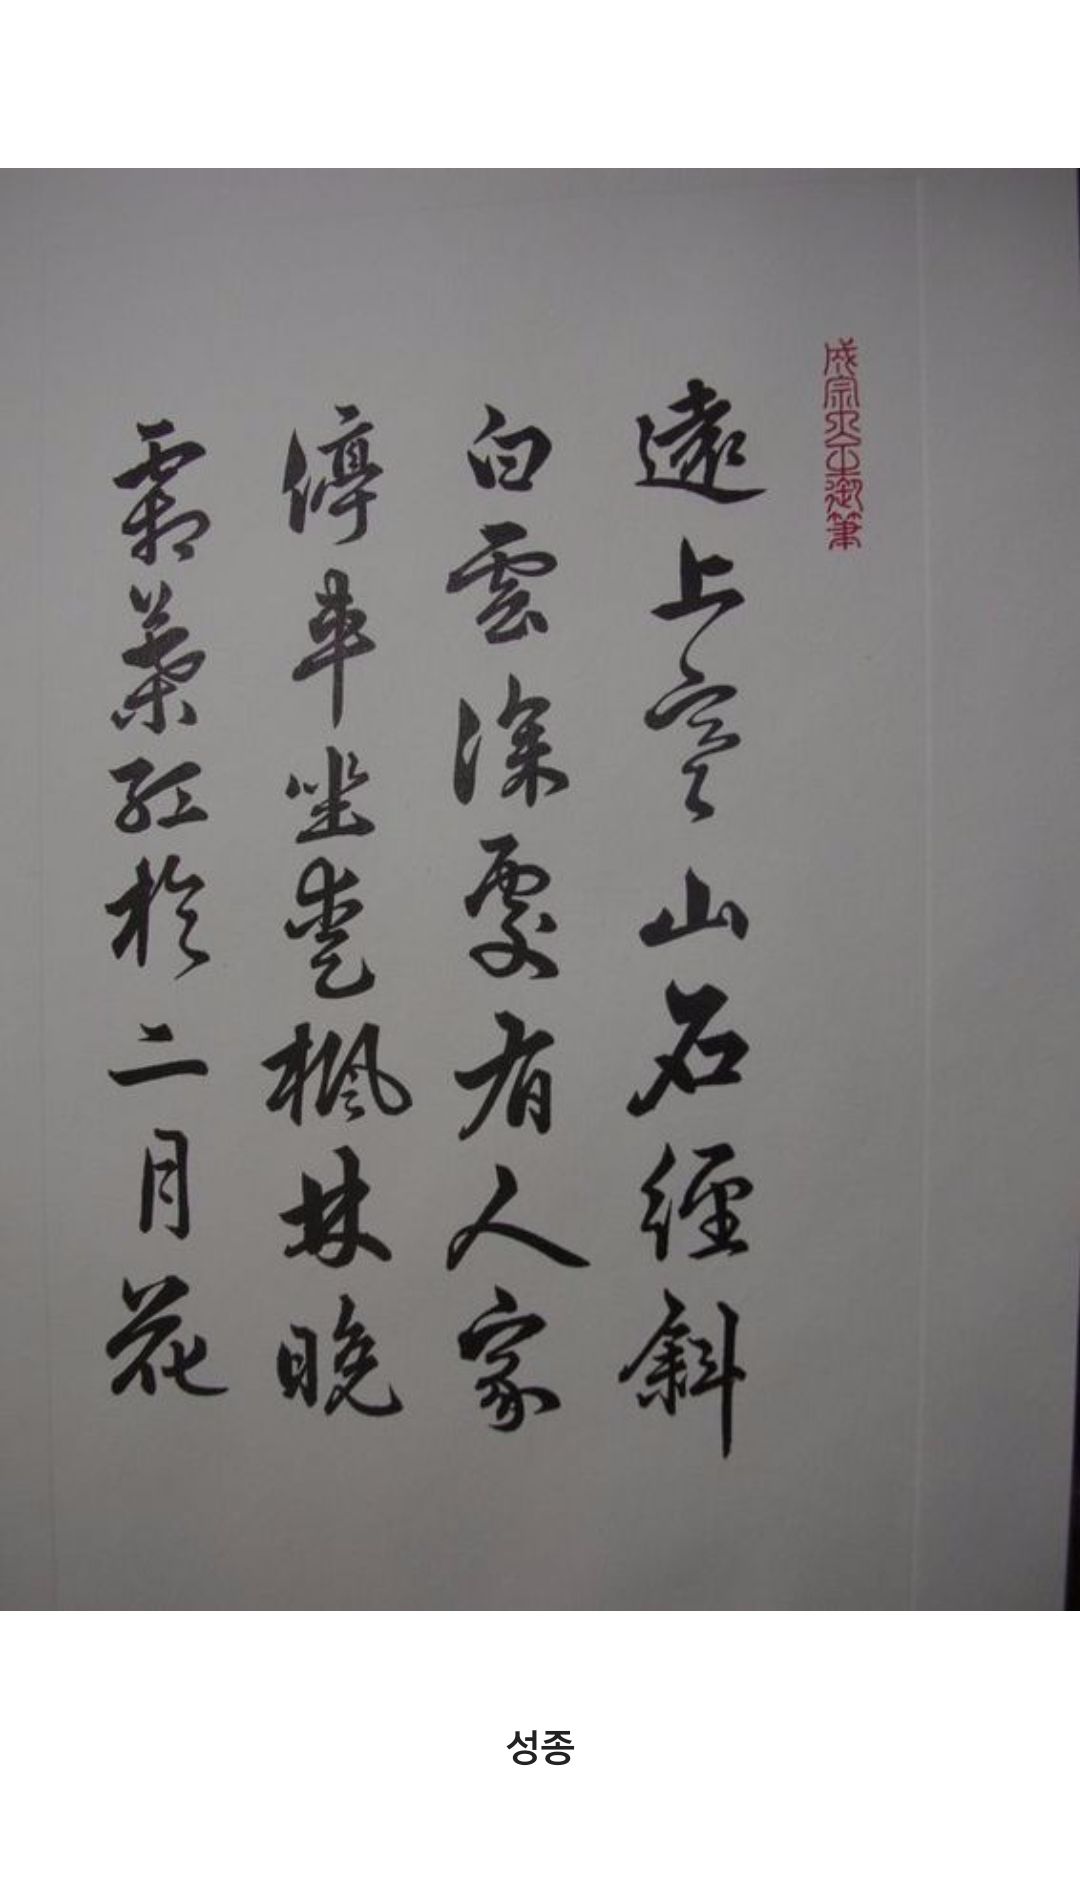 成宗大王御筆
遠上寒山石徑斜
白雲深處有人家
停車坐愛楓林晩
霜葉紅於二月花
성종